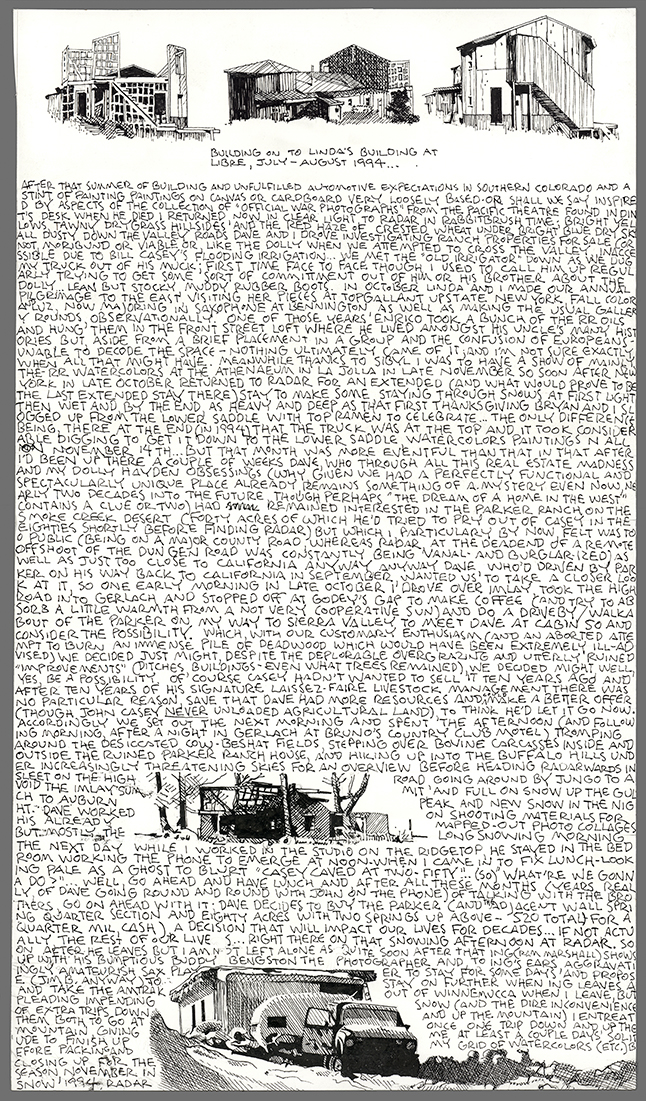 BUILDING ON TO LINDA'S BUILDING AT
LIBRE, JULY-AUGUST 1994...
AFTER THAT SUMMER OF BUILDING AND UNFULFILLED AUTOMOTIVE EXPECTATIONS IN SOUTHERN COLORADO AND A
STINT OF PAINTING PAINTINGS ON CANVAS OR CARDBOARD VERY LOOSELY BASED-OR SHALL WE SAY INSPIRE
D BY ASPECTS OF THE COLLECTION OF "OFFICIAL WAR PHOTOGRAPHS" FROM THE PACIFIC THEATRE FOUND IN DIN
T'S DESK WHEN HE DIED I RETURNED NOW IN CLEAR LIGHT TO RADAR IN RABBITBRUSH TIME: BRIGHT YEL
LOWS, TAWNY DRYGRASS HILLSIDES AND THE RED HAZE OF CRESTED WHEAT UNDER BRIGHT BLUE DRY SK
ALL DUSTY DOWN THE VALLEY ROADS DAVE AND I DROVE INVESTIGATING RANCH PROPERTIES FOR SALE (OR
NOT, MORIBUND OR VIABLE OR, LIKE THE DOLLY WHEN WE ATTEMPTED TO CROSS THE VALLEY INACCE
SSIBLE DUE TO BILL CASEY'S FLOODING IRRIGATION... WE MET "THE OLD IRRIGATOR" DOWN AS HE DUG
MY TRUCK OUT OF HIS MUCK: FIRST TIME FACE TO FACE THOUGH I USED TO CALL HIM UP REGUL
ARLY TRYING TO GET SOME SORT OF COMMITMENT OUT OF HIM OR HIS BROTHER ABOUT THE
DOLLY, LEAN BUT STOCKY MUDDY RUBBER BOOTS. IN OCTOBER LINDA AND I MADE OUR ANNUAL
PILGRIMAGE TO THE EAST VISITING HER PIECES AT TOPGALLANT UPSTATE NEW YORK, FALL COLOR
NOW MAJORING IN SAXOPHONE AT BENNINGTON AS WELL AS MAKING THE USUAL GALLER
Y ROUNDS OBSERVATIONALLY. ONE OF THOSE YEARS ENRICO TOOK A BUNCH OF THE RR OILS
AND HUNG THEM IN THE FRONT STREET LOFT WHERE HE LIVED AMONGST HIS UNCLE'S MANY HIST
ORIES BUT, ASIDE FROM A BRIEF PLACEMENT IN A GROUP AND THE CONFUSION OF EUROPEANS
UNABLE TO DECODE THE SPACE - NOTHING ULTIMATELY CAME OF IT AND I'M NOT SURE EXACTLY
WHEN ALL THAT MIGHT HAVE. MEANWHILE THANKS TO SIBYL I WAS TO HAVE A SHOW OF MAINLY
THE RR WATERCOLORS AT THE ATHENAEUM IN LA JOLLA IN LATE NOVEMBER SO SOON AFTER NEW
YORK IN LATE OCTOBER RETURNED TO RADAR FOR AN EXTENDED (AND WHAT WOULD PROVE TO BE
THE LAST EXTENDED STAY THERE) STAY TO MAKE SOME. STAYING THROUGH SNOWS AT FIRST LIGHT
THEN WET AND BY THE END AS HEAVY AND DEEP AS THAT FIRST THANKSGIVING BRYAN AND I SL
OGGED UP FROM THE LOWER SADDLE WITH TOP RAMEN TO CELEBRATE... THE ONLY DIFFERENCE
BEING, THERE AT THE END (IN 1994) THAT THE TRUCK WAS AT THE TOP AND IT TOOK CONSIDER
ABLE DIGGING TO GET IT DOWN TO THE LOWER SADDLE WATERCOLORS PAINTINGS N ALL
ON NOVEMBER 14TH... BUT THAT MONTH WAS MORE EVENTFUL THAN THAT IN THAT AFTER
I'D BEEN UP THERE A COUPLE OF WEEKS DAVE, WHO THROUGH ALL THIS REAL ESTATE MADNESS
AND MY DOLLY HAYDEN OBSESSINGS (WHY GIVEN WE HAD A PERFECTLY FUNCTIONAL AND
SPECTACULARLY UNIQUE PLACE ALREADY REMAINS SOMETHING OF A MYSTERY EVEN NOW NE
ARLY TWO DECADES INTO THE FUTURE THOUGH PERHAPS "THE DREAM OF A HOME IN THE WEST"
CONTAINS A CLUE OR TWO) HAD REMAINED INTERESTED IN THE PARKER RANCH ON THE
SMOKE CREEK DESERT (FORTY ACRES OF WHICH HE'D TRIED TO PRY OUT OF CASEY IN THE
EIGHTIES SHORTLY BEFORE FINDING RADAR) BUT WHICH I, PARTICULARLY BY NOW, FELT WAS TO
O PUBLIC (BEING ON A MAJOR COUNTY ROAD WHEREAS RADAR, AT THE DEADEND OF A REMOTE
OFFSHOOT OF THE DUN GLEN ROAD WAS CONSTANTLY BEING VANAL- AND BURGLAR-IZED) AS
WELL AS JUST TOO CLOSE TO CALIFORNIA ANYWAY. ANYWAY DAVE WHO'D DRIVEN BY PAR
KER ON HIS WAY BACK TO CALIFORNIA IN SEPTEMBER WANTED US TO TAKE A CLOSER LOO
K AT IT, SO ONE EARLY MORNING IN LATE OCTOBER I DROVE OVER IMLAY TOOK THE HIGH
ROAD INTO GERLACH AND STOPPED OFF AT GODEY'S GAP TO MAKE COFFEE (AND TRY TO AB
SORB A LITTLE WARMTH FROM A NOT VERY COOPERATIVE SUN) AND DO A DRIVEBY/WALKA
BOUT OF THE PARKER ON MY WAY TO SIERRA VALLEY TO MEET DAVE AT CABIN SO AND
CONSIDER THE POSSIBILITY. WHICH, WITH OUR CUSTOMARY ENTHUSIASM (AND AN ABORTED ATTE
MPT TO BURN AN IMMENSE PILE OF DEADWOOD WHICH WOULD HAVE BEEN EXTREMELY ILL-AD
VISED) WE DECIDED JUST MIGHT, DESPITE THE DEPLORABLE OVERGRAZING AND UTTERLY RUINED
"IMPROVEMENTS" (DITCHES BUILDINGS-EVEN WHAT TREES REMAINED), WE DECIDED MIGHT WELL,
YES, BE A POSSIBILITY. OF COURSE CASEY HADN'T WANTED TO SELL IT TEN YEARS AGO AND
AFTER TEN YEARS OF HIS SIGNATURE LAISSEZ-FAIRE LIVESTOCK MANAGEMENT THERE WAS
NO PARTICULAR REASON, SAVE THAT DAVE HAD MORE RESOURCES AND MAKE A BETTER OFFER
(THOUGH JOHN CASEY NEVER UNLOADED AGRICULTURAL LAND) TO THINK HE'D LET IT GO NOW.
ACCORDINGLY WE SET OUT THE NEXT MORNING AND SPENT THE AFTERNOON (AND FOLLOW
ING MORNING, AFTER A NIGHT IN GERLACH AT BRUNO'S COUNTRY CLUB MOTEL) TROMPING
AROUND THE DESICCATED COW-BESHAT FIELDS, STEPPING OVER BOVINE CARCASSES INSIDE AND
OUTSIDE THE RUINED PARKER RANCH HOUSE, AND HIKING UP INTO THE BUFFALO HILLS UND
ER INCREASINGLY THREATENING SKIES FOR AN OVERVIEW BEFORE HEADING RADARWARDS IN
SLEET ON THE HIGH ROAD GOING AROUND BY JUNGO TO A
VOID THE IMLAY SUM MIT AND FULL ON SNOW UP THE GUL
CH TO AUBURN PEAK AND NEW SNOW IN THE NIG
HT. DAVE WORKED ON SHOOTING MATERIALS FOR
HIS ALREADY MAPPED OUT PHOTO COLLAGES
BUT MOSTLY, THE LONG SNOWING MORNING
THE NEXT DAY WHILE I WORKED IN THE STUDIO ON THE RIDGETOP, HE STAYED IN THE BED
ROOM WORKING THE PHONE TO EMERGE AT NOON-WHEN I CAME IN TO FIX LUNCH-LOOK
ING PALE AS A GHOST TO BLURT "CASEY CAVED AT TWO-FIFTY". (SO) "WHAT'RE WE GONN
A DO?"... WELL, GO AHEAD AND HAVE LUNCH AND AFTER ALL THESE MONTHS (YEARS REAL
LY, OF DAVE GOING ROUND AND ROUND WITH JOHN ON THE PHONE) OF TALKING WITH THE BRO
THERS, GO ON AHEAD WITH IT: DAVE DECIDES TO BUY THE PARKER (AND ADJACENT WALL SPRI
NG QUARTER SECTION AND EIGHTY ACRES WITH TWO SPRINGS UP ABOVE - 520 TOTAL) FOR A
QUARTER MIL CASH), A DECISION THAT WILL IMPACT OUR LIVES FOR DECADES... IF NOT ACTU
ALLY THE REST OF OUR LIVE S... RIGHT THERE ON THAT SNOWING AFTERNOON AT RADAR. SO
ON AFTER HE LEAVES BUT I AM NOT LEFT ALONE AS QUITE SOON AFTER THAT ING (FROM MARSHALL) SHOWS
UP WITH HIS BUMPTIOUS BUDDY BENGSTON THE PHOTOGRAPHER AND TO HIS EARS AGGRAVATI
INGLY AMATEURISH SAX PLAY ER TO STAY FOR SOME DAYS AND PROPOS
E (JIM) ANYWAY TO STAY ON FURTHER WHEN ING LEAVES A
AND TAKE THE AMTRAK OUT OF WINNEMUCCA WHEN I LEAVE, BUT
PLEADING IMPENDING SNOW (AND THE DIRE INCONVENIENCE
OF EXTRA TRIPS DOWN AND UP THE MOUNTAIN) I ENTREA
THEM BOTH TO GO AT ONCE, ONE TRIP DOWN AND UP THE
MOUNTAIN, GIVING ME AT LEAST A COUPLE DAYS SOLIT
UDE TO FINISH UP MY GRID OF WATERCOLORS (ETC.) B
EFORE PACKING AND
CLOSING UP FOR THE
SEASON, NOVEMBER IN
SNOW 1994 RADAR